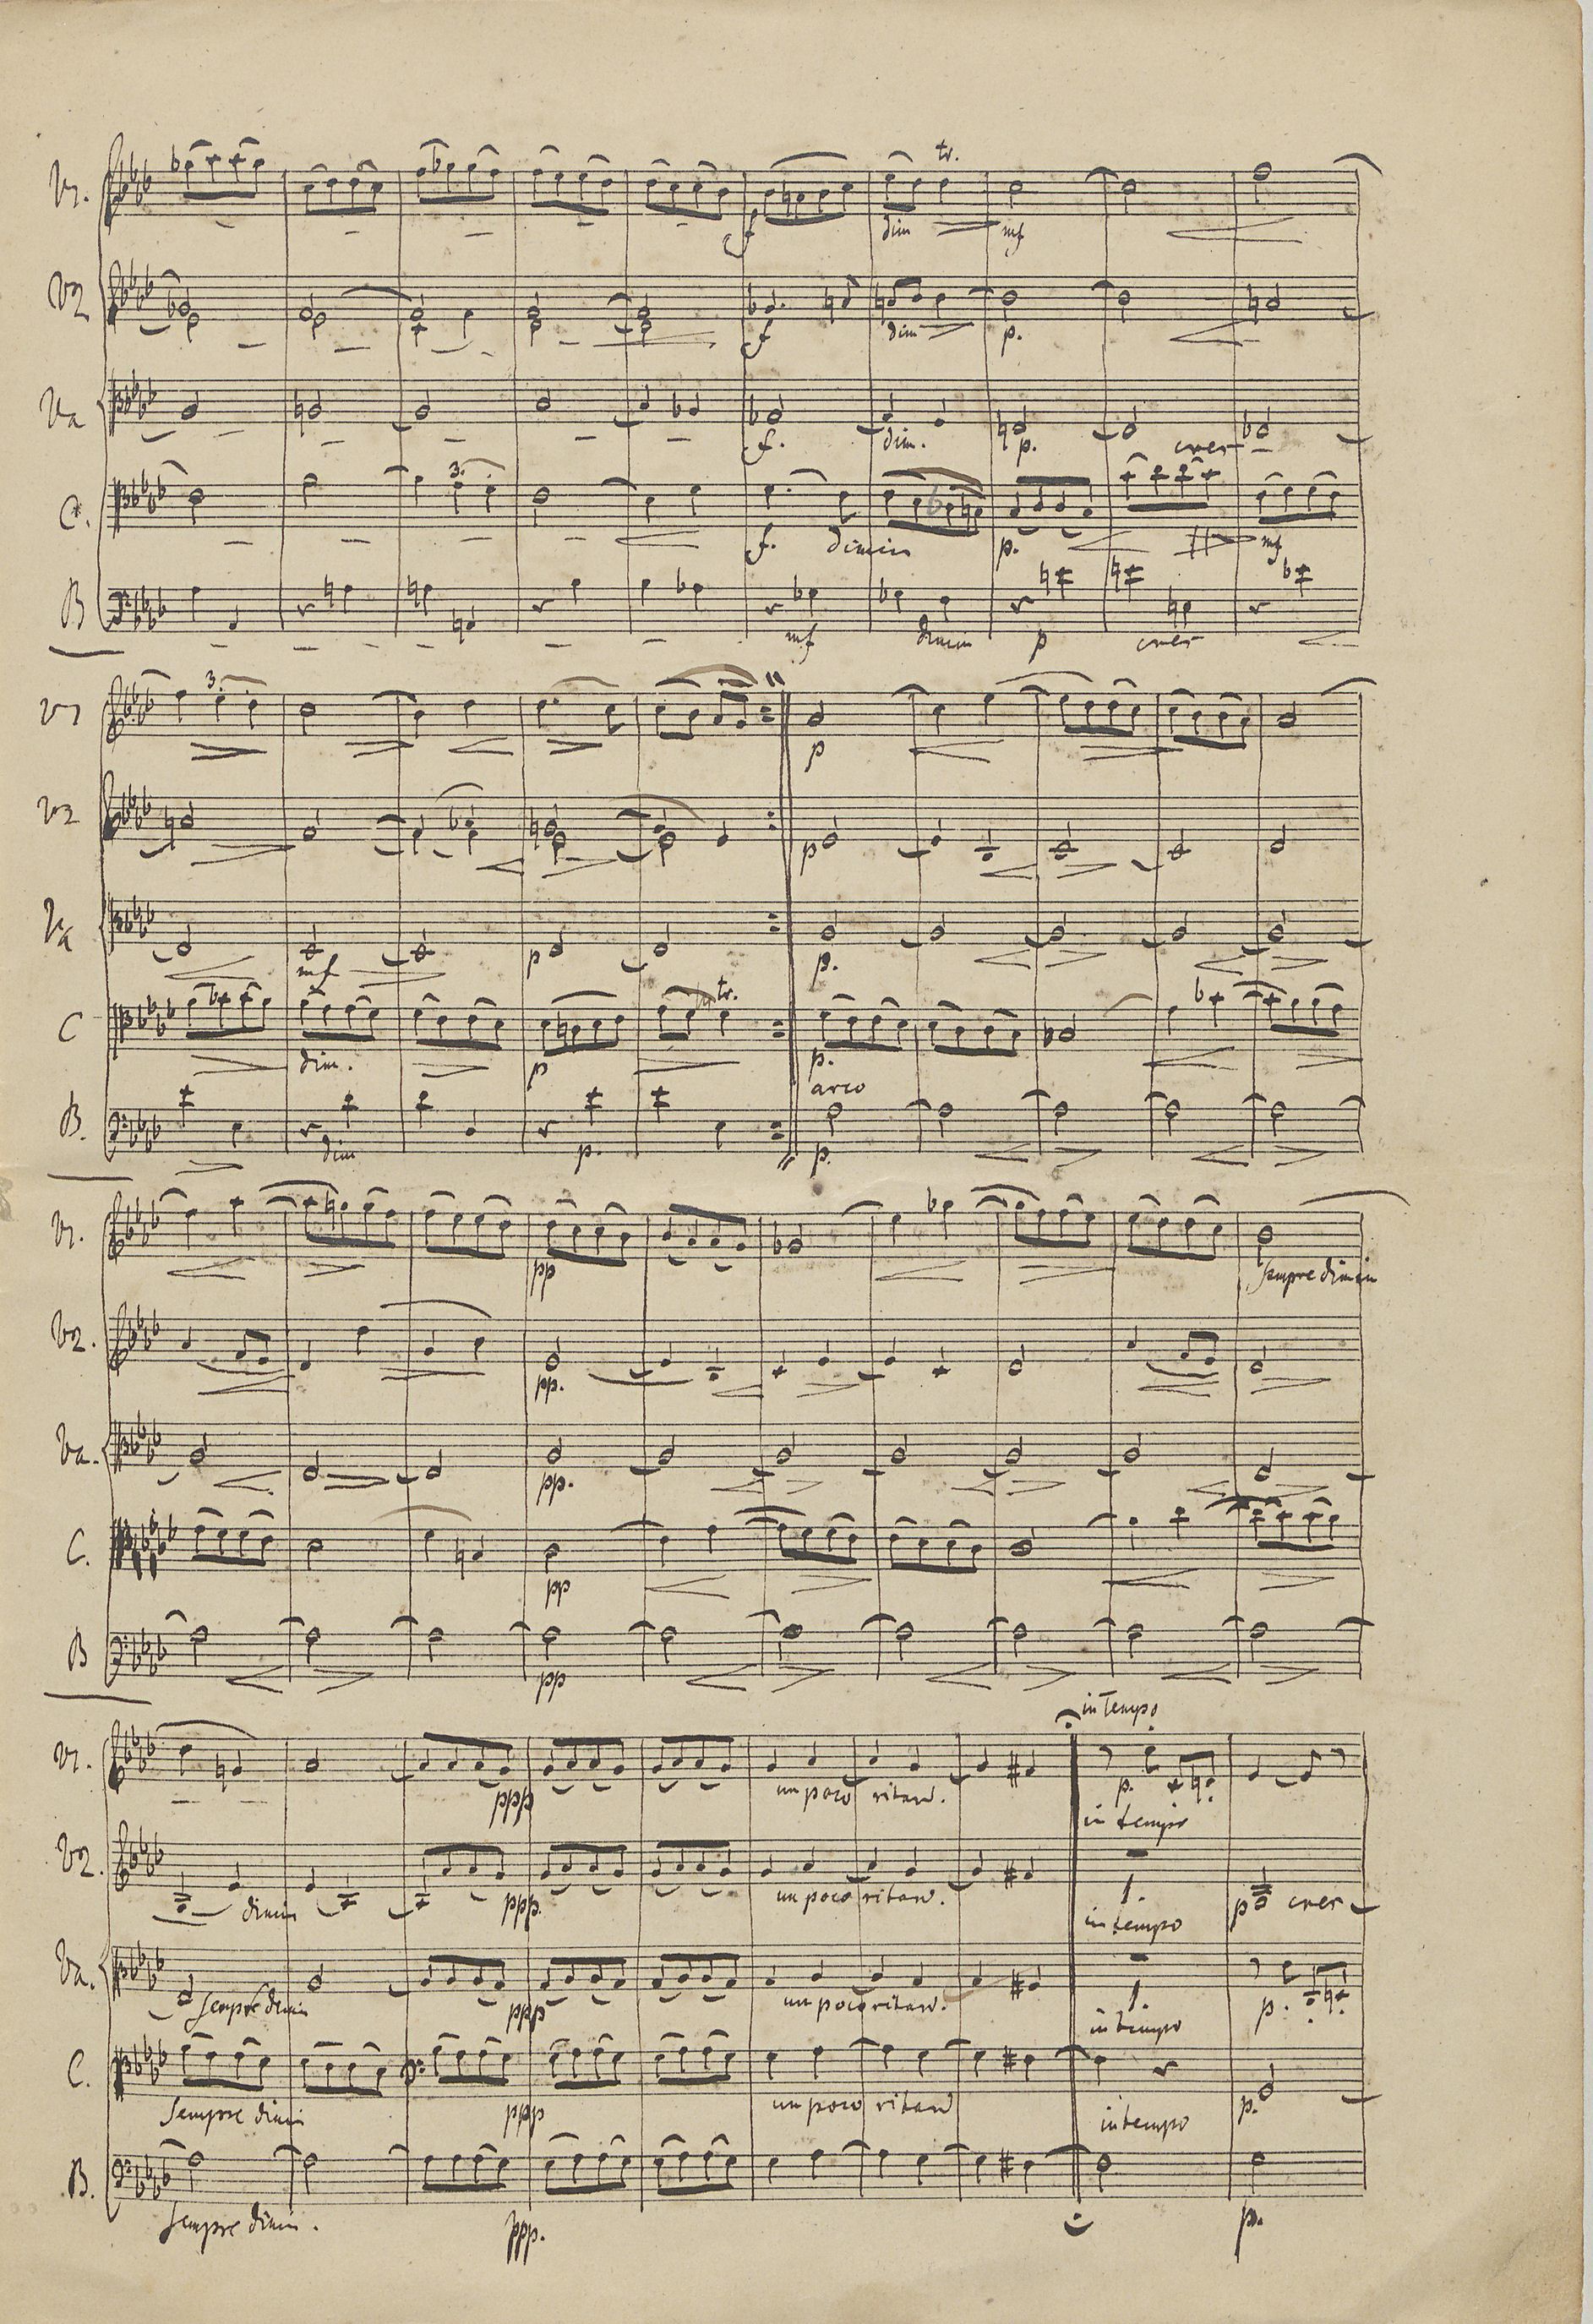 tr.
V1.
f dim mf
V2
f dim p.
Va
f. dim. p. cres
3.
C.
f. dimin p. mf
B
mf dimin p cres
3.
V1
p
V2
p
Va
mf p p.
tr.
C
dim. p p.
arco
B.
dim p. p.
V1.
pp sempre dimin
V2.
pp.
Va.
pp.
C.
pp
B
pp
in Tempo
V1.
ppp un poco ritard. p.
in tempo
V2.
dimin ppp. un poco ritard. 1. p cres
in tempo
Va.
sempre dimin ppp un poco ritard. 1. p.
in tempo
C.
sempre dimin ppp un poco ritard in tempo p.
B.
sempre dimin. ppp. p.